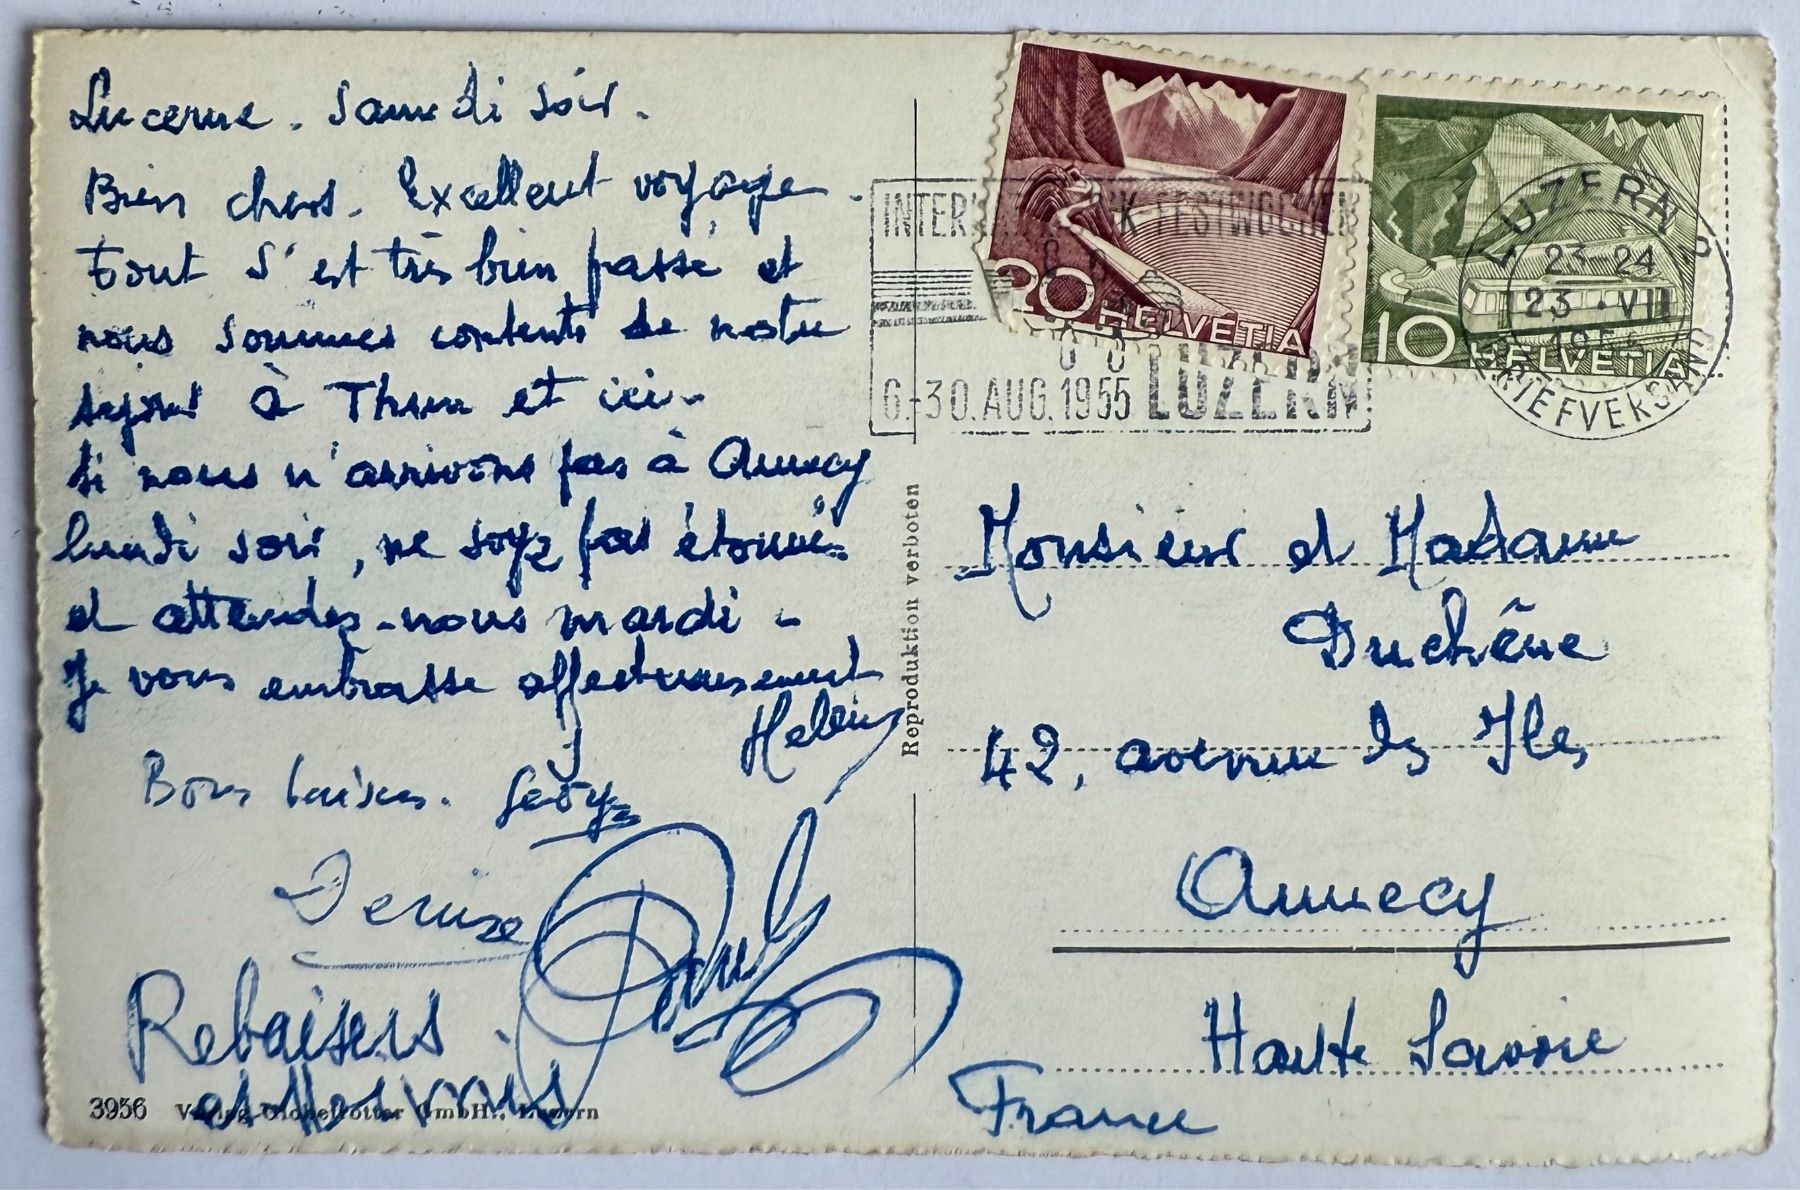 Lucerne. Samedi soir.
Bien chers. Excellent voyage.
Tout s'est très bien passé et
nous sommes contents de notre
séjour à Thun et ici.
Si nous n'arrivons pas à Annecy
lundi soir, ne soyez pas étonnés
et attendez-nous mardi.
Je vous embrasse affectueusement
Bons baisers.
Denise
Rebaisers
3956 Verlag Globetrotter GmbH., Luzern
Reproduktion verboten
INTERN. MUSIK-FESTWOCHEN
6.-30. AUG. 1955 LUZERN
20 HELVETIA
10 HELVETIA
LUZERN 2
23-24
23.VII
1955
BRIEFVERSAND
Monsieur et Madame
Duchêne
42, avenue des Iles
Annecy
Haute Savoie
France